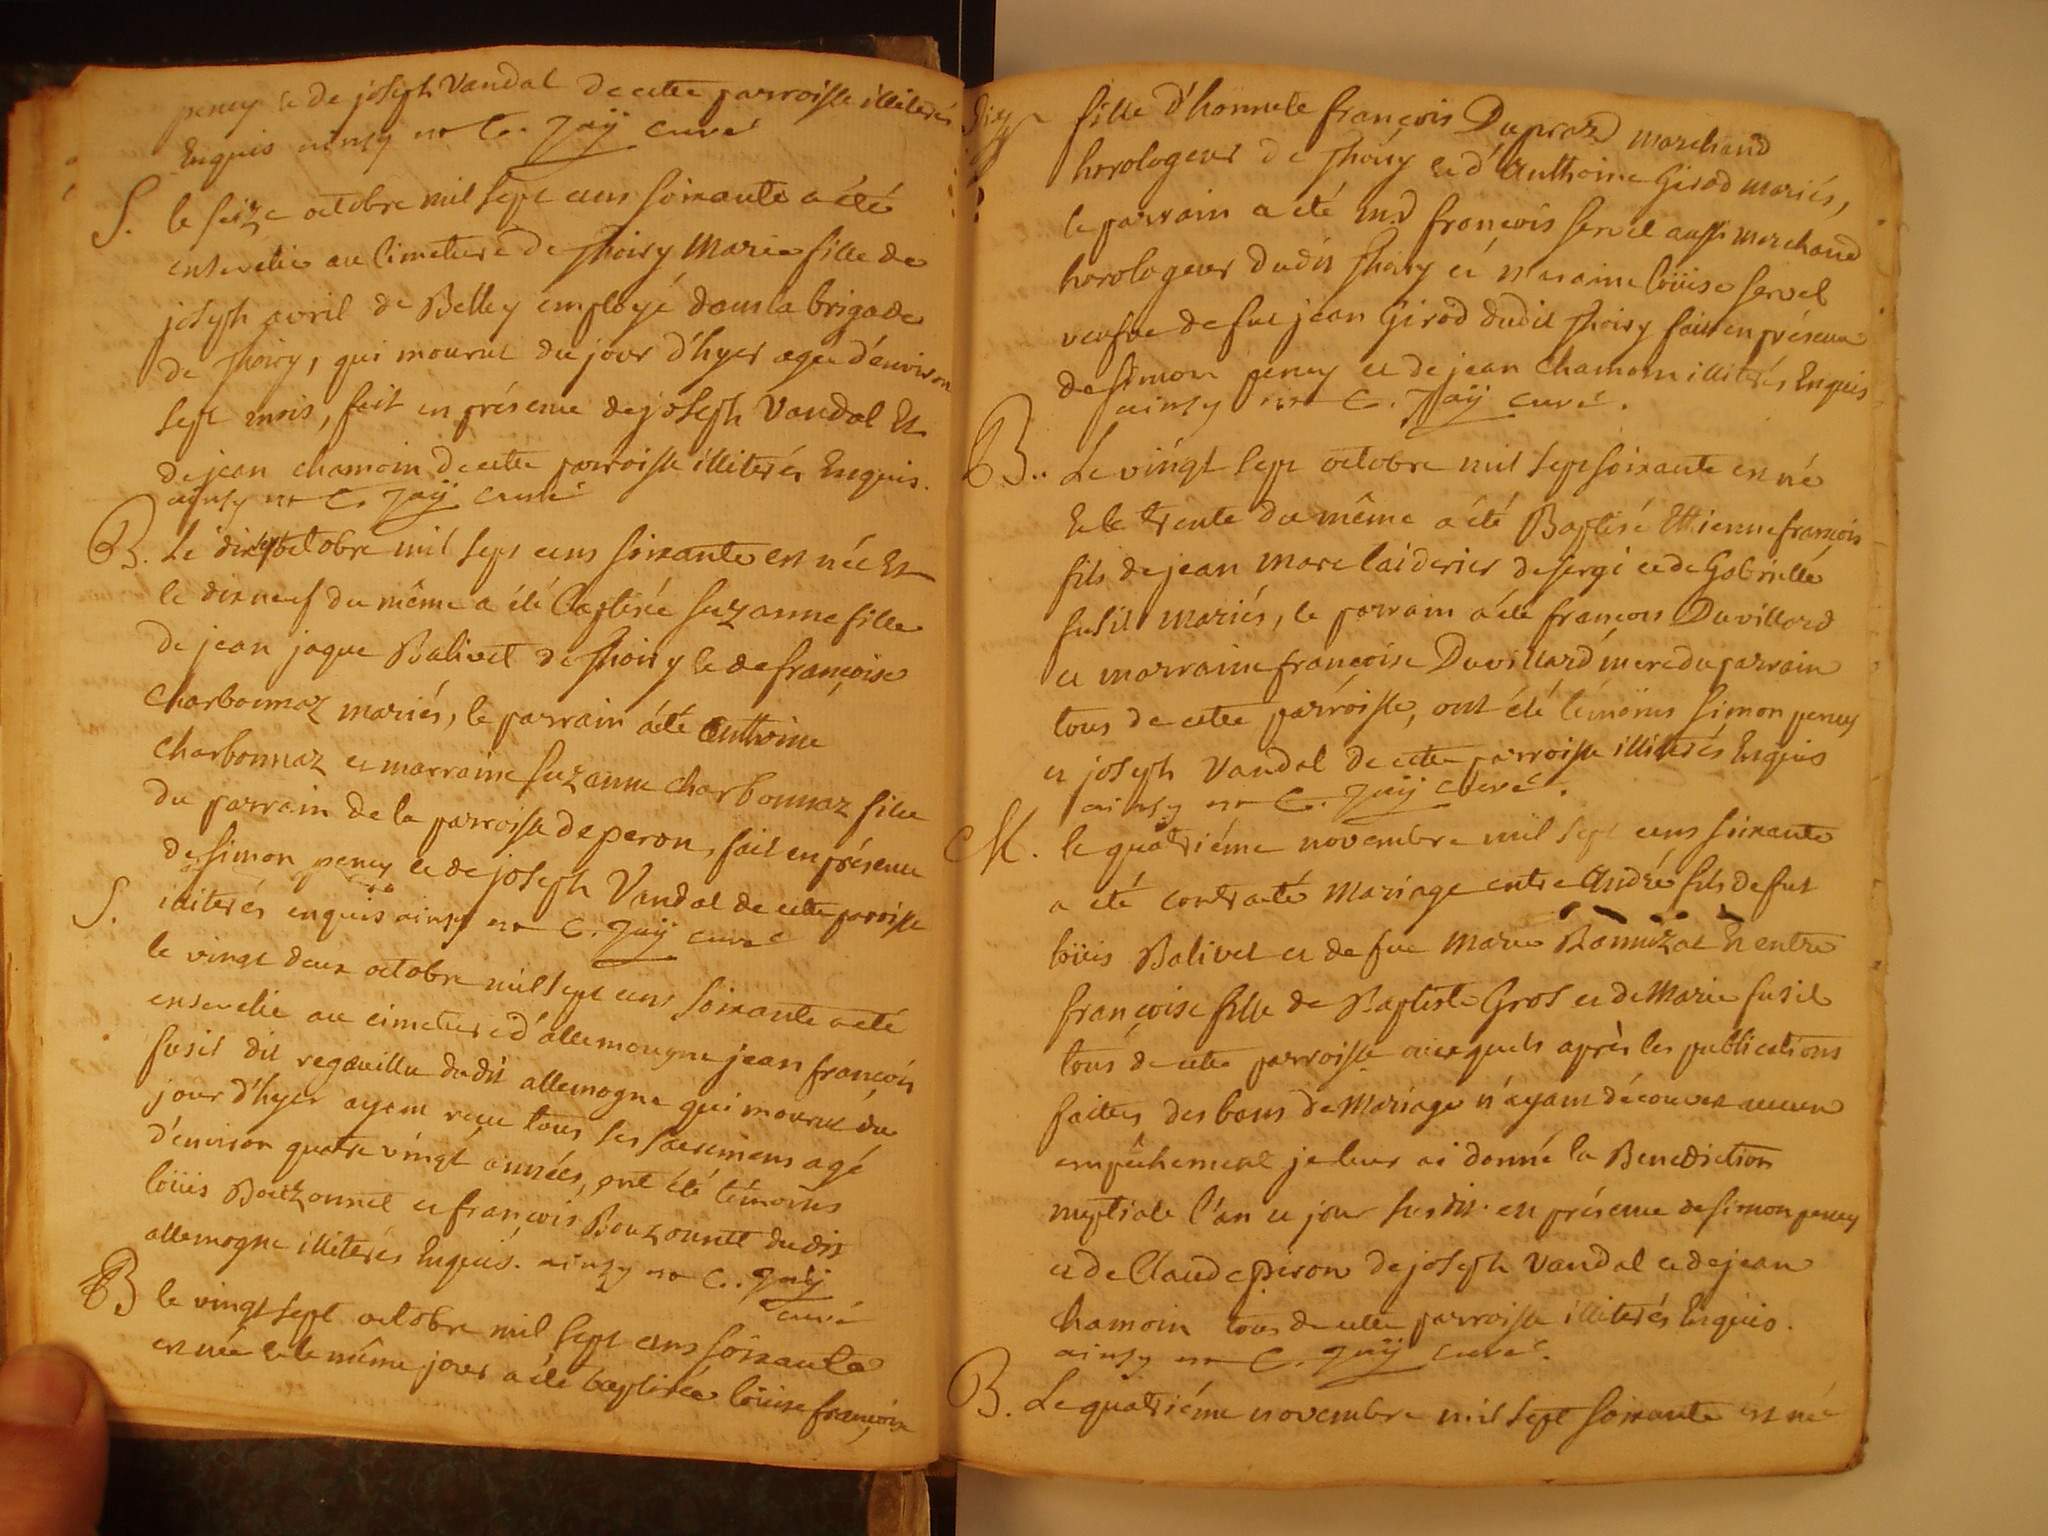 peney & de joseph Vandal de cette parroisse illiterés
Enquis ainsy est C. Jaÿ curé
S. le seize octobre mil sept cens soixante a été
ensevelie au Cimetiere de Thoiry Marie fille de
joseph avril de Belley employé dans la brigade
de Thoiry, qui mourut du jour d'hyer agée d'environ
sept mois, fait en présence de joseph Vandal Et
de jean chamoin de cette parroisse illiterés Enquis.
ainsy est C. Jaÿ curé
B. Le dixsept octobre mil sept cens soixante est née Et
le dixneuf du même a été Baptisée suzanne fille
de jean jaque Balivet de Thoiry & de françoise
Charbonnaz mariés, le parrain a été Anthoine
Charbonnaz et marraine suzanne charbonnaz fille
du parrain de la parroisse de peron, fait en présence
de simon peney et de joseph Vandal de cette parroisse
illiterés enquis ainsy est C. Jaÿ curé
S. le vingt deux octobre mil sept cens soixante a été
enseveli au cimetiere d'allemougne jean françois
fusil dit regauillu dudit allemogne qui mourut du
jour d'hyer ayant reçu tous ses sacremens agé
d'environ quatre vingt années, ont été témoins
loüis Bouzonnet et françois Bouzonnet dudit
allemogne illiterés Enquis. ainsy est C. Jaÿ
curé
B le vingt sept octobre mil sept cens soixante
est née & le même jour a été baptisée loüise françoise
fille d'honnete françois Dupraz marchand
horologeur de Thoiry & d'Anthoine Girod mariés,
le parrain a été md françois servel aussi marchand
horologeur dudit Thoiry et maraine loüise servel
veufve de feu jean Girod dudit Thoiry fait en présence
de simon peney et de jean Chamoin illiterés Enquis
ainsy est C. Jaÿ curé.
B.. Le vingt sept octobre mil sept soixante est né
& le trente du même a été Baptisé Ettienne françois
fils de jean marc laiderier de sergi et de Gabrielle
fusil mariés, le parrain a été françois Duvillard
et marraine françoise Duvillard mere du parrain
tous de cette parroisse, ont été témoins simon peney
et joseph Vandal de cette parroisse illiterés Enquis
ainsy est C. Jaÿ curé.
M. le quatriéme novembre mil sept cens soixante
a été contracté Mariage entre André fils de feu
loüis Balivet et de feue Marie Et entre
françoise fille de Baptiste Gros et de Marie fusil
tous de cette parroisse auxquels après les publications
faites des bans de Mariage n'ayant découvert aucun
empêchement je leur ai donné la Benediction
nuptiale l'an et jour susdit en présence de simon peney
et de Claude peron de joseph Vandal et de jean
chamoin tous de cette parroisse illiterés Enquis.
ainsy est C. Jaÿ curé.
B. Le quatriéme novembre mil sept soixante est né